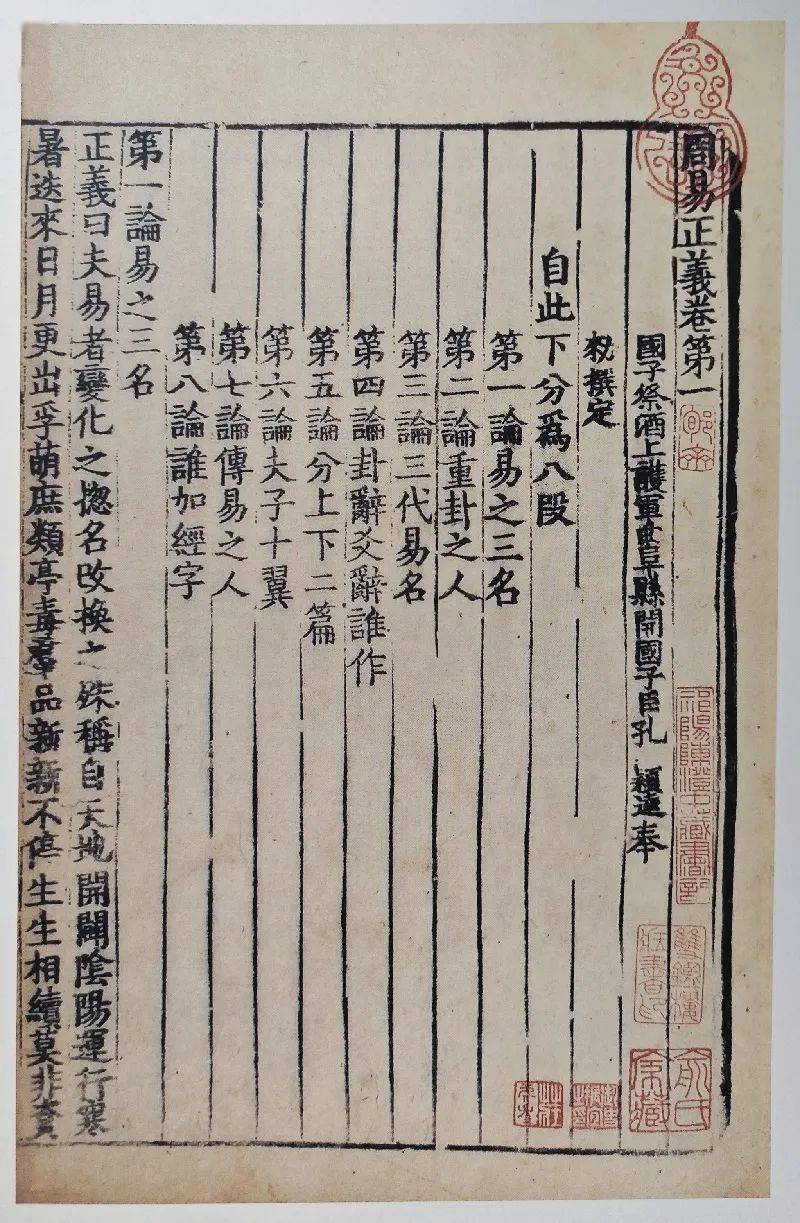 周易正義卷第一
國子祭酒上護軍曲阜縣開國子臣孔 穎達奉
敕撰定
自此下分爲八段
第一論易之三名
第二論重卦之人
第三論三代易名
第四論卦辭爻辭誰作
第五論分上下二篇
第六論夫子十翼
第七論傳易之人
第八論誰加經字
第一論易之三名
正義曰夫易者變化之揔名改換之殊稱自天地開闢陰陽運行寒
暑迭來日月更出孚萌庶類亭毒羣品新新不停生生相續莫非資
祁陽陳澄中藏書記
俞氏